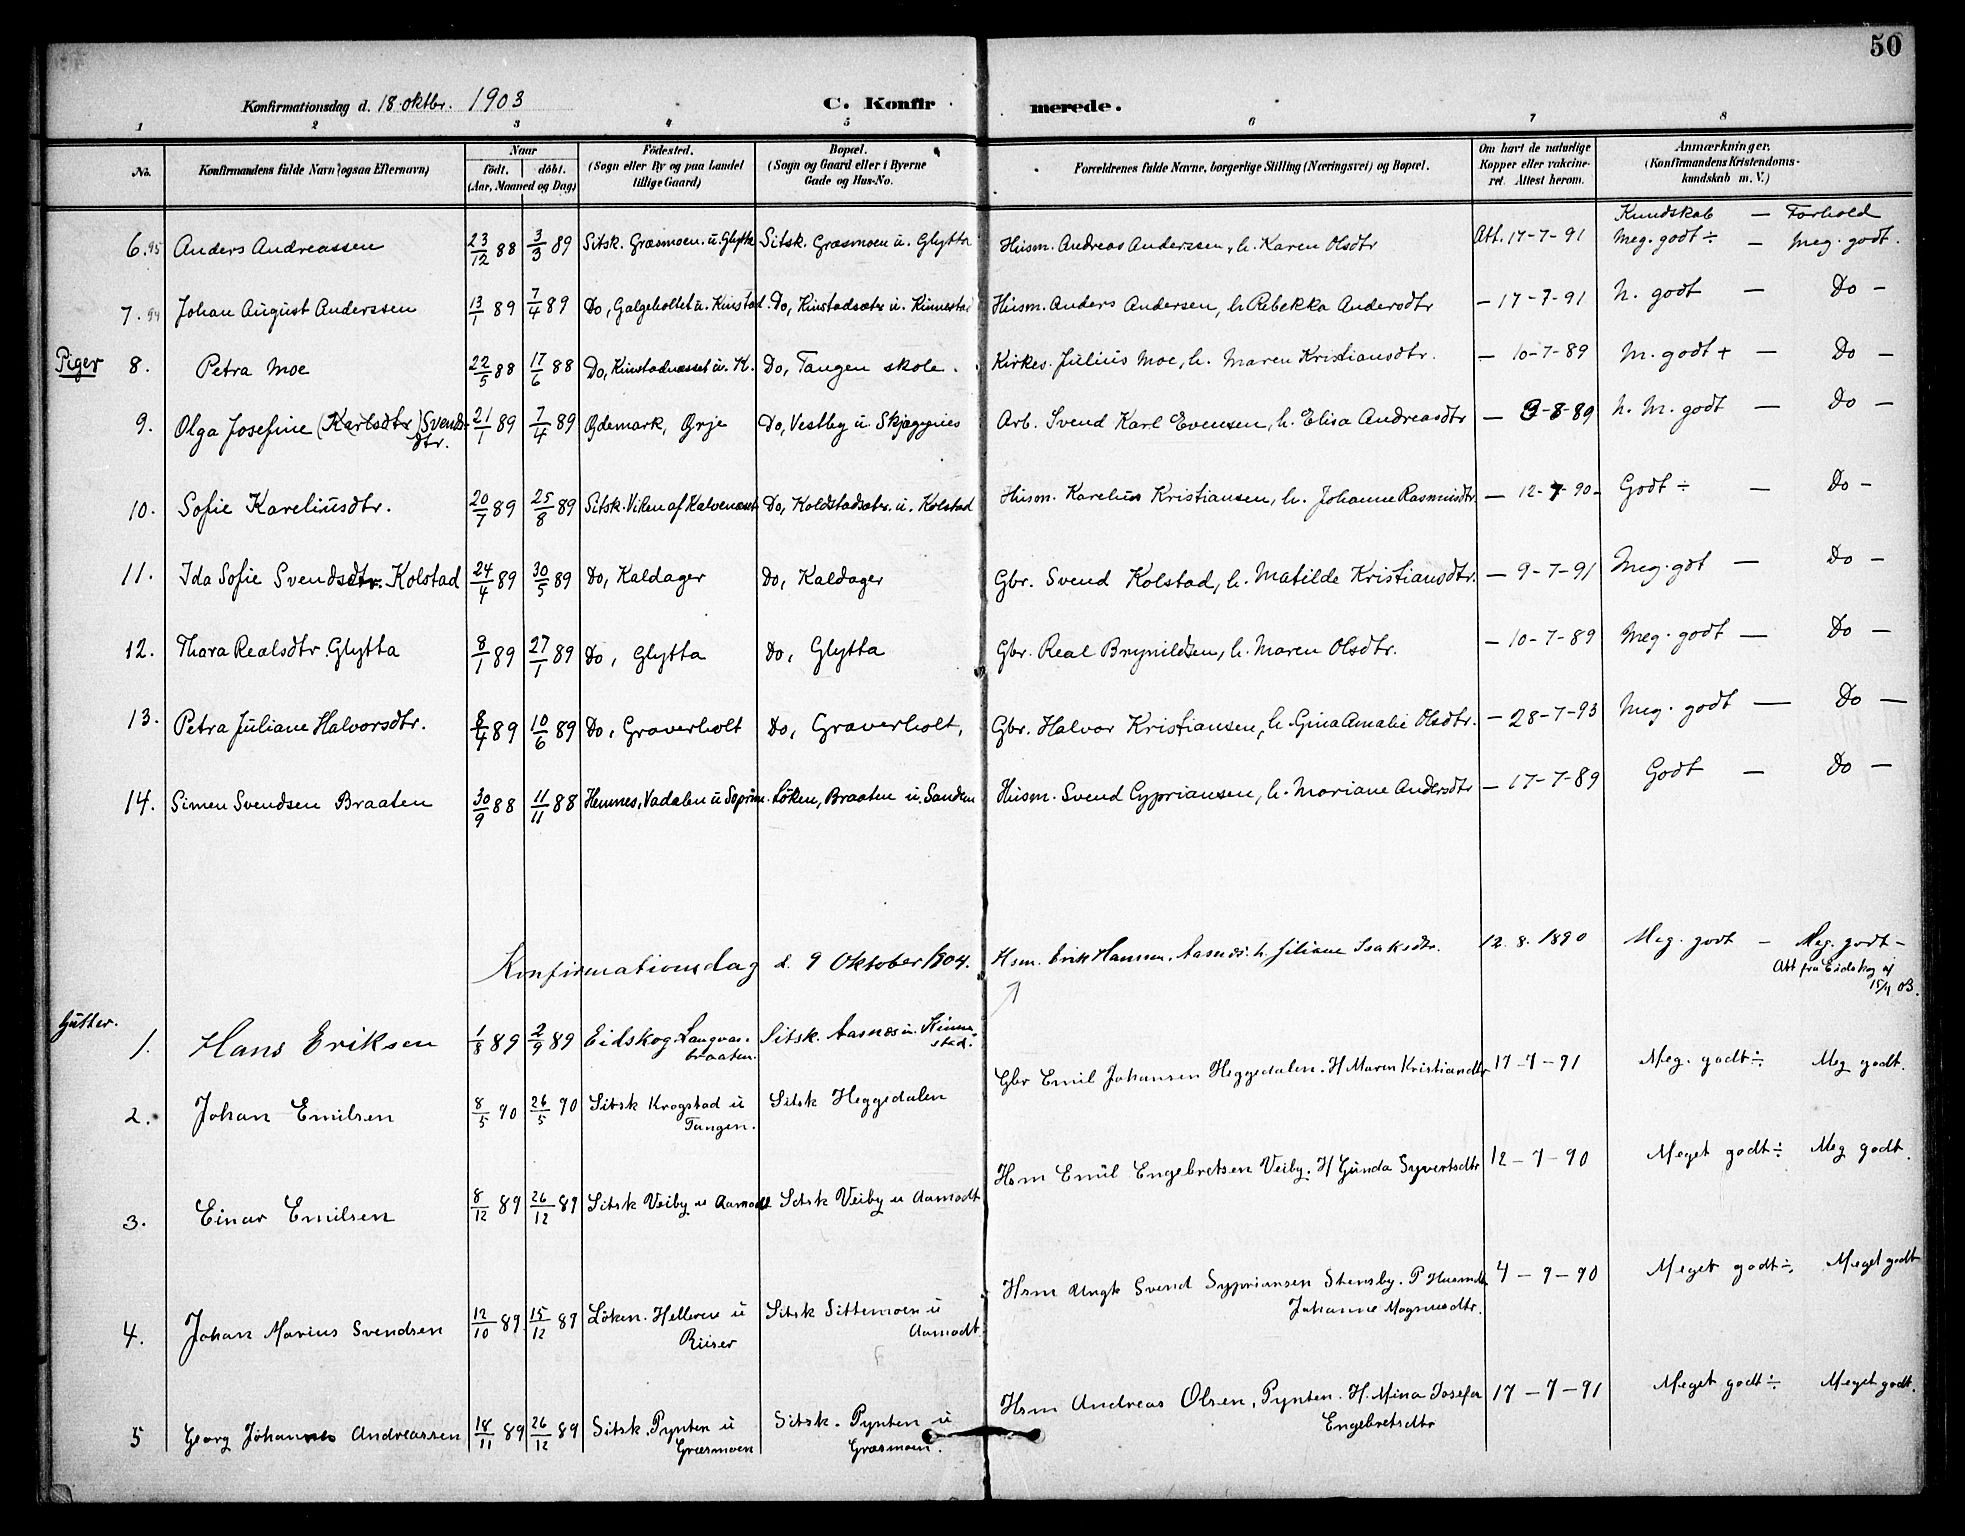 50
Konfirmationsdag d. 18. oktbr. 1903 C. Konfir merede.
1 2 3 4 5 6 7 8
No. Konfirmandens fulde Navn (ogsaa Efternavn) Naar født. døbt. (Aar, Maaned og Dag) Fødested. (Sogn eller By og paa Landet tillige Gaard) Bopæl. (Sogn og Gaard eller i Byerne Gade og Hus-No. Forældrenes fulde Navne, borgerlige Stilling (Næringsvei) og Bopæl. Om havt de naturlige Kopper eller vakcineret. Attest herom. Anmærkninger. (Konfirmandens Kristendomskundskab m. V.)
Kundskab — Forhold
6. 95 Anders Andreassen 23/12 88 3/3 89 Sitsk. Græsmoen u. Glytta Sitsk. Græsmoen u. Glytta Husm. Andreas Anderssen, h. Karen Olsdtr Att. 17-7-91 Meg. godt ÷ — Meg. godt.
7. 94 Johan August Anderssen 13/1 89 7/4 89 Do, Galgeholtet u. Kinstad Do, Kinstadsæter u. Kinnestad Husm. Anders Andersen, h. Rebekka Andersdtr — 17-7-91 N. godt — Do —
Piger 8. Petra Moe 22/5 88 17/6 88 Do, Kinstadnæsset u. K. Do, Tangen skole. Kirkes. Julius Moe, h. Maren Kristiansdtr. — 10-7-89 M. godt + — Do —
9. Olga Josefine (Karlsdtr) Svends-dtr. 21/1 89 7/4 89 Ødemark, Ørje Do, Vestby u. Skjæggnies Arb. Svend Karl Evensen, h. Elisa Andreasdtr — 3-8-89 N. M. godt — Do —
10. Sofie Kareliusdtr. 20/7 89 25/8 89 Sitsk. Viken af Kalvenæset Do, Koldstadsæter u. Kolstad Husm. Karelius Kristiansen, h. Johanne Rasmusdtr — 12-7-90 — Godt ÷ — Do —
11. Ida Sofie Svendsdtr. Kolstad 24/4 89 30/5 89 Do, Kaldager Do, Kaldager Gbr. Svend Kolstad, h. Matilde Kristiansdtr. — 9-7-91 Meg. gdt — Do —
12. Thara Realsdtr. Glytta 8/1 89 27/1 89 Do, Glytta Do, Glytta Gbr. Real Brynildsen, h. Maren Olsdtr. — 10-7-89 Meg. godt — Do —
13. Petra Juliane Halvorsdtr. 8/4 89 10/6 89 Do, Graverholt Do, Graverholt, Gbr. Halvor Kristiansen, h. Gina Amalie Olsdtr. — 28-7-93 Meg. godt — Do —
14. Simen Svendsen Braaten 30/9 88 11/11 88 Hemnes, Vadalen u. Søprim. Løken, Braaten u. Sandem Husm. Svend Cypriansen, h. Mariane Andersdtr — 17-7-89 Godt — Do —
Konfirmationsdag d. 9 Oktober 1904. Hsm. Erik Hansen. Aasnæs. h. Juliane Isaksdtr. 12. 8. 1890 Meg. godt — Meg. godt —
Att fra Eidskog af 15/9 03.
Gutter.
1. Hans Eriksen 1/8 89 2/9 89 Eidskog Langvas-braaten. Sitsk. Aasnæs u. Kinne-stad.
Gbr Emil Johansen Heggedalen. H Maren Kristiandtr 17-7-91 Meg. godt ÷ Meg godt.
2. Johan Emilsen 8/5 90 26/5 90 Sitsk Krogstad u Tangen. Sitsk Heggedalen
Hsm Emil Engebretsen Veiby. H Gunda Syvertsdtr 12-7-90 Meget godt ÷ Meg godt.
3. Einar Emilsen 8/12 89 26/12 89 Sitsk Veiby u Aamodt Sitsk Veiby u Aamodt
Hsm Ungk Svend Sypriansen Stensby. P Johanne Magnusdtr. 4-9-90 Meget godt ÷ Meget godt
4. Johan Marius Svendsen 12/10 89 15/12 89 Løken. Helleren u Riiser Sitsk Sittemoen u Aamodt.
Hsm Andreas Olsen, Pynten. H. Mina Josefa Engebretsdtr 17-7-91 Meget godt ÷ Meget godt.
5 Georg Johannes Andreassen 18/11 89 26/12 89 Sitsk. Pynten u Græsmoen Sitsk. Pynten u Græsmoen.